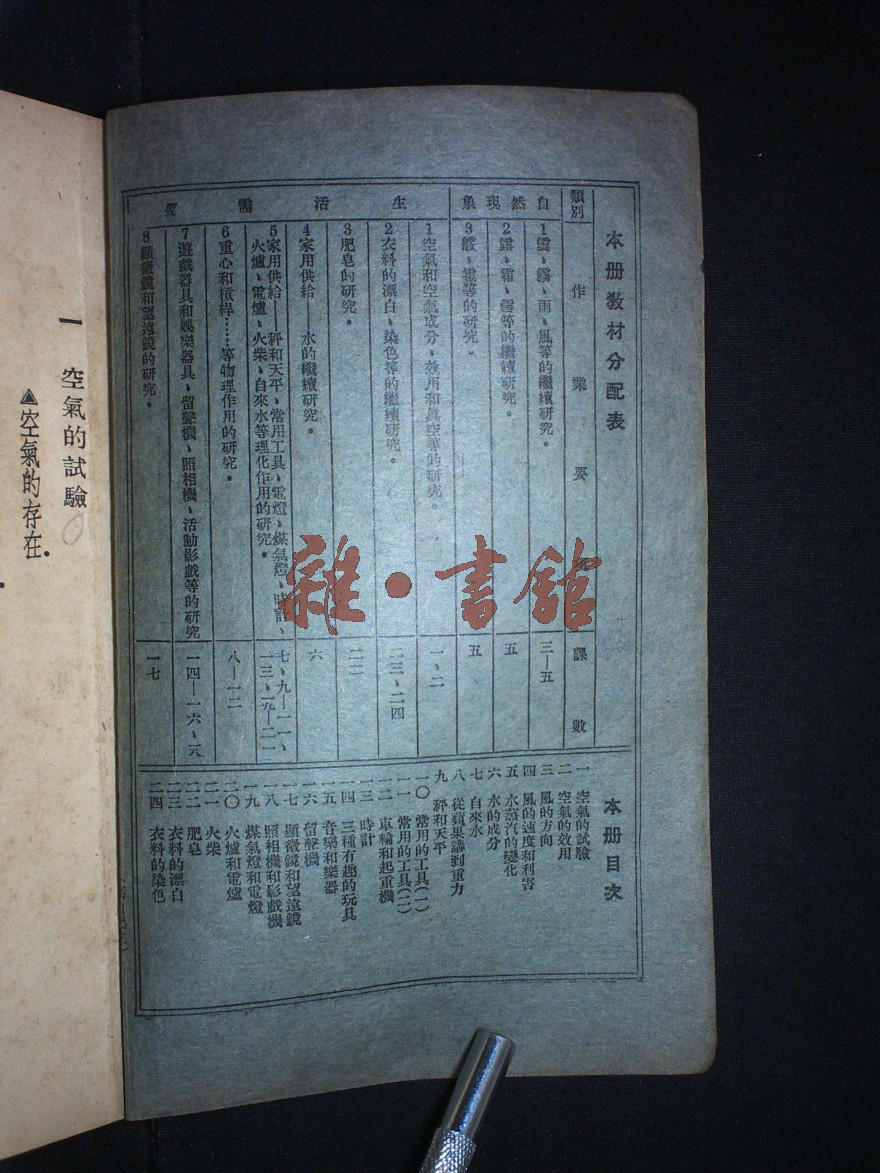 本册教材分配表
類別 作業要 課數
自然現象
1雲、霧、雨、風等的繼續研究。 三—五
2露、霜、雪等的繼續研究。 五
3霰、雹等的研究。 五
生活需要
1空氣和空氣成分、效用和真空等的研究。 一、二
2衣料的漂白、染色等的繼續研究。 二三、二四
3肥皂的研究。 二二
4家用供給——水的繼續研究。 六
5家用供給——秤和天平、常用工具、電燈、煤氣燈、時計、
火爐、電爐、火柴、自來水等理化作用的研究。
七、九—一一、
一三、一九—二一
6重心和槓桿……等物理作用的研究。 八—一二
7遊戲器具和娛樂器具、留聲機、照相機、活動影戲等的研究 一四—一六、一八
8顯微鏡和望遠鏡的研究。 一七
本册目次
一 空氣的試驗
二 空氣的效用
三 風的方向
四 風的速度和利害
五 水蒸汽的變化
六 水的成分
七 自來水
八 從蘋果講到重力
九 秤和天平
一〇 常用的工具(一)
一一 常用的工具(二)
一二 車輪和起重機
一三 時計
一四 三種有趣的玩具
一五 音樂和樂器
一六 留聲機
一七 顯微鏡和望遠鏡
一八 照相機和影戲機
一九 煤氣燈和電燈
二〇 火爐和電爐
二一 火柴
二二 肥皂
二三 衣料的漂白
二四 衣料的染色
一 空氣的試驗
▲空氣的存在.
雜·書館